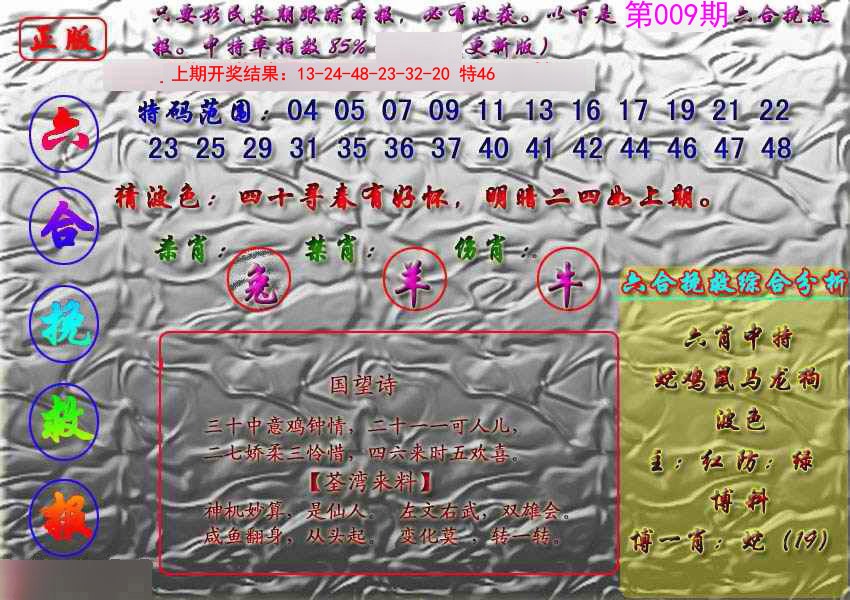 正版
只要彩民长期跟踪本报，必有收获。以下是 第009期六合挽救
报。中特率指数85% 更新版）
. 上期开奖结果：13-24-48-23-32-20 特46
特码范围：04 05 07 09 11 13 16 17 19 21 22
23 25 29 31 35 36 37 40 41 42 44 46 47 48
猜波色：四十寻春有好怀，明暗二四如上期。
杀肖： 禁肖： 伤肖：
兔 羊 牛
六合挽救报
六合挽救综合分析
六肖中特
蛇鸡鼠马龙狗
波色
主：红防：绿
博料
博一肖：蛇（19）
国望诗
三十中意鸡钟情，二十一一可人儿，
二七娇柔三怜惜，四六来时五欢喜。
【荃湾来料】
神机妙算，是仙人。 左文右武，双雄会。
咸鱼翻身，从头起。 变化莫 ，转一转。